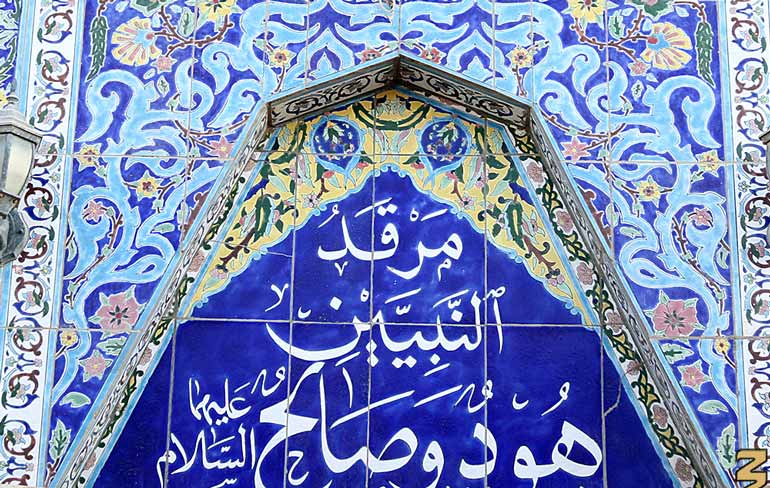 مَرْقَدُ
ٱلنَّبِيَّيْنِ
هُودُ وَصَالِحُ عَلَيْهِمَا السَّلَام